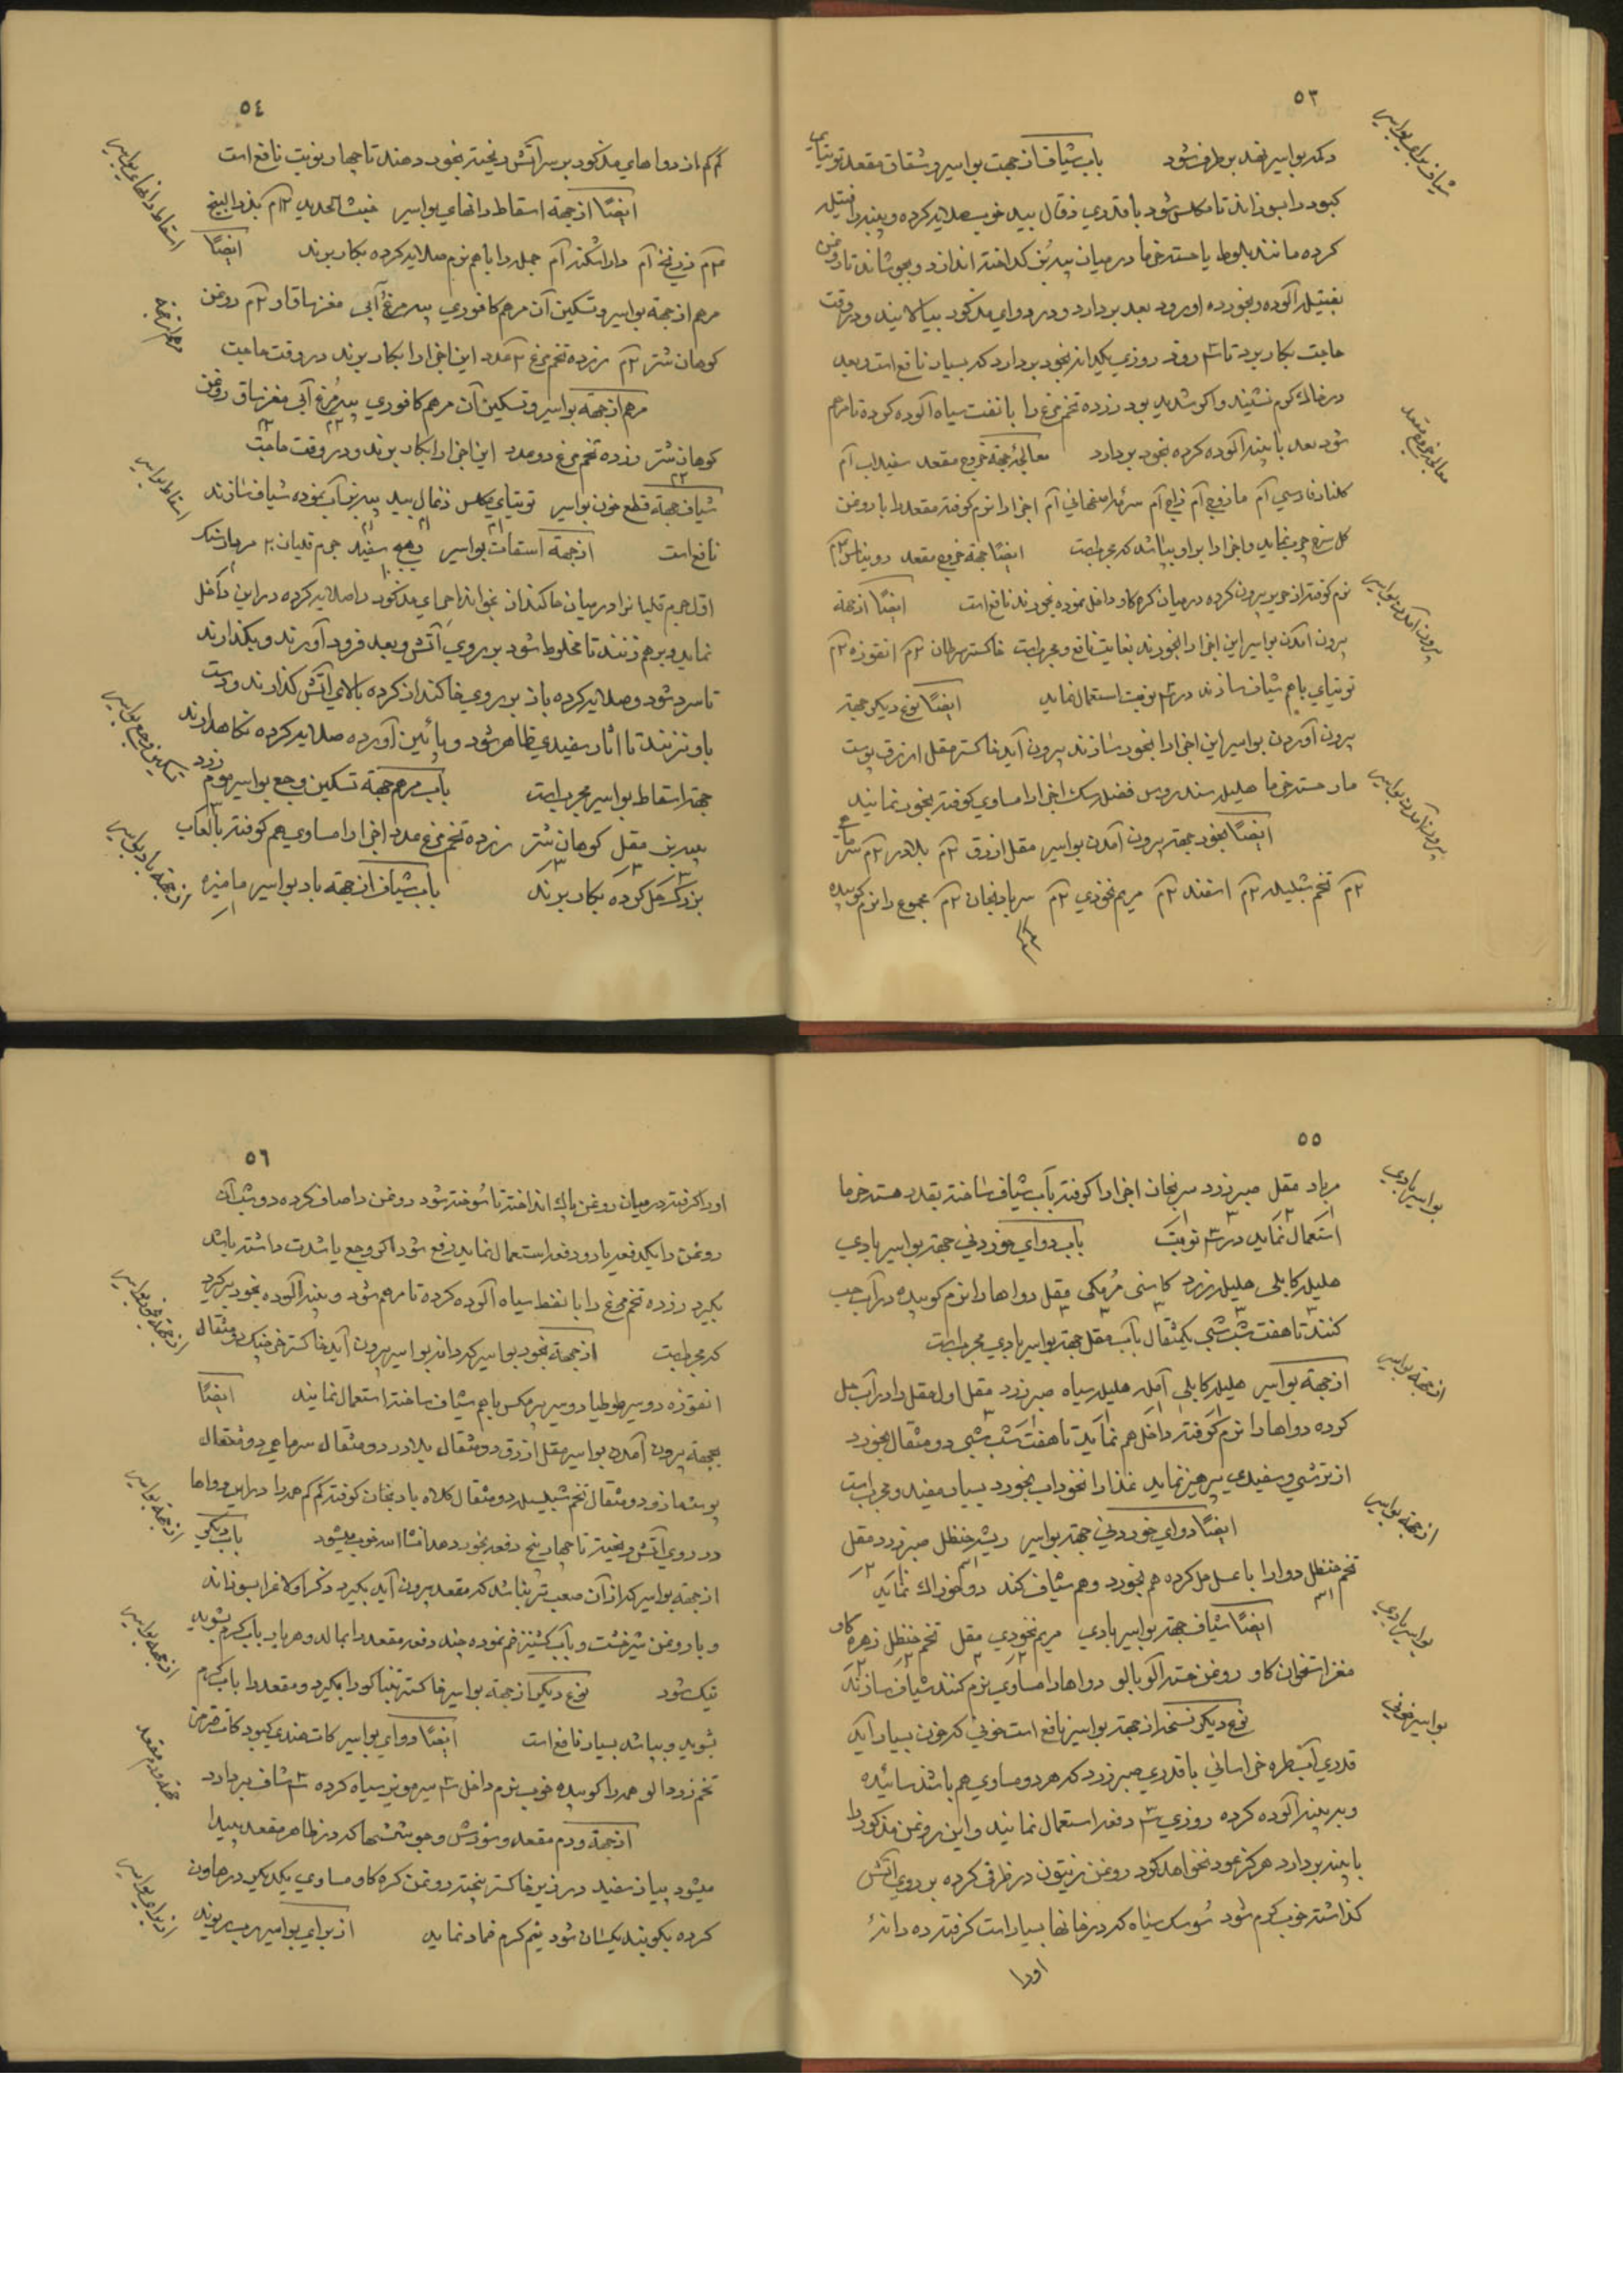 ٥٣
شیاف برای بواسیر
دکمه بواسیر بفید برطرف شود باب شیاف از جهت بواسیر و شقاق مقعد توتیای
کبود را بسوزاند تا مکلس شود با قدری ذغال بید خوب صلایه کرده و پنبه را فتیله
کرده مانند بلوط یا هسته خرما در میان پیه بُز گداخته اندازد و بجوشاند تا روغن
بفتیله آلوده و بخورده او رود بعد بردارد و در دوای مذکور بیالایند و در وقت
حاجت بکار برد تا ۳ روز روزی یکدانه بخود بردارد که بسیار نافع است و بعد
در خاک گرم نشیند و اگر شدید بود زرده تخم مرغ را با نفت سیاه آلوده کرده تا مرهم
شود بعد با پنبه آلوده کرده بخود بردارد معالجهٔ جهة خروج مقعد سفیداب
معالجه خروج مقعد
گلنار فارسی مازو زاج سرمه اصفهانی اجزا را نرم کوفته مقعد را با روغن
گل سرخ چرب نماید و اجزا را بر او بپاشد که مجربست ایضًا جهة خروج مقعد روناس
نرم کوفته از حریر بیرون کرده در میان کره گاو داخل نموده بخورند نافع است ایضًا از جهة
بیرون آمدن بواسیر
بیرون آمدن بواسیر این اجزا را بخورند بغایت نافع و مجربست خاکستر سرطان انقوزه
توتیای باهم شیاف سازند در ۳ نوبت استعمال نماید ایضًا نوع دیگر جهة
بیرون آوردن بواسیر این اجزا را بخود سازند بیرون آید خاکستر مقل ازرق پوست
بیرون آمدن بواسیر
مار هسته خرما هلیله سندروس فضله سگ اجزا را مساوی کوفته بخود نمایند
ایضًا بخود جهة بیرون آمدن بواسیر مقل ازرق بلادر
تخم شبلیله اسفند مریم نخودی سر بادنجان مجموع را نرم کوبیده
٥٤
کم کم از دواهای مذکور بر سر آتش ریخته بخود دهند تا چهار نوبت نافع است
اسقاط دانهای بواسیر
ایضًا از جهة اسقاط دانهای بواسیر خبث الحدید بذرالبنج
زرنیخ داراشکنه جمله را باهم نرم صلایه کرده بکار برند ایضًا
مرهم از جهة بواسیر و تسکین آن مرهم کافوری پیه مرغ آبی مغز ساق گاو روغن
کوهان شتر زرده تخم مرغ ۲ عدد این اجزا را بکار برند در وقت حاجت
مرهم از جهة بواسیر و تسکین آن مرهم کافوری پیه مُرغ آبی مغز ساق روغن
کوهان شتر زرده تخم مرغ دو عدد این اجزا را بکار برند و در وقت حاجت
اسقاط بواسیر
شیاف جهة قطع خون بواسیر توتیای مکلس ذغال بید پیه بز آب نموده شیاف سازند
نافع است از جهة اسقاط بواسیر سفید جرم قلیان
اول جرم قلیان را در میان خاکنداز نحو اندازد صلایه کرده در این داخل
نماید و برهم زنند تا مخلوط شود بر روی آتش و بعد فرود آورند و بگذارند
تا سرد شود و صلایه کرده باز بر روی خاکنداز کرده بالای آتش گذارند و دست
باو نزنند تا آثار سفیدی ظاهر شود و پائین آورده صلایه کرده نگاهدارند
تسکین وجع بواسیر
جهة اسقاط بواسیر مجربست باب مرهم جهة تسکین وجع بواسیر موم زرد
پیه بز مقل کوهان شتر زرده تخم مرغ عدد اجزا را مساوی هم کوفته با لعاب
از جهة باد بواسیر
بزرک حل کرده بکار برند باب شیاف از جهة باد بواسیر مامیزه
٥٥
بواسیر بادی
مرباد مقل صبر زرد سرنجان اجزا را کوفته بآب شیاف ساخته بقدر هسته خرما
استعمال نماید در ۳ نوبت باب دوای خوردنی جهة بواسیر بادی
هلیله کابلی هلیله زرد کاسنی مُر مکی مقل دواها را نرم کوبیده در آب حب
کنند تا هفت شب شبی یکمثقال بآب مقل جهة بواسیر بادی مجربست
از جهة بواسیر
از جهة بواسیر هلیله کابلی آمله هلیله سیاه صبر زرد مقل اول مقل را در آب حل
کرده دواها را نرم کوفته داخل هم نماید تا هفت شب شبی دو مثقال بخورد
از ترشی و سفیدی پرهیز نماید غذا را نخوداب بخورد بسیار مفید و مجربست
از جهة بواسیر
ایضًا دوای خوردنی جهة بواسیر ریشه حنظل صبر زرد مقل
تخم حنظل دوا را با عسل حل کرده هم بخورد و هم شیاف کند دو خوراک نماید
بواسیر بادی
ایضًا شیاف جهة بواسیر بادی مریم نخودی مقل تخم حنظل زهره گاو
مغز استخوان گاو روغن هسته آلوبالو دواها را مساوی نرم کنند شیاف سازند
بواسیر خونی
نوع دیگر نسخه از جهة بواسیر نافع است خونی که خون بسیار آید
قدری خراسانی با قدری صبر زرد که هر دو مساوی هم باشد سائیده
و بر پنبه آلوده کرده روزی ۳ دفعه استعمال نمایند و این روغن مذکور را
با پنبه بردارد هرگز عود نخواهد کرد روغن زیتون در ظرفی کرده بر روی آتش
گذاشته خوب گرم شود سُوسک سیاه که در خانها بسیار است گرفته ده دانهٔ
اورا
٥٦
اورا گرفته در میان روغن پاک انداخته تا سُوخته شود روغن را صاف کرده دو شب آن
روغن را یکدفعه یا دو دفعه استعمال نماید رفع شود اگر وجع باشدت داشته باشد
بگیرد زرده تخم مرغ را با نفط سیاه آلوده کرده تا مرهم شود و پنبه آلوده بخود برگیرد
که مجربست از جهة بخود بواسیر که دانه بواسیر بیرون آید خاکستر خرچنگ دو مثقال
انقوزه دو سیر طوطیا دو سیر باهم شیاف ساخته استعمال نمایند ایضًا
بجهة بیرون آمدن بواسیر مقل ازرق دو مثقال بلادر دو مثقال سرماهی دو مثقال
از جهة بواسیر
دو مثقال تخم شبلیله دو مثقال کلاه بادنجان کوفته کم کم دواها
در روی آتش ریخته تا چهار پنج دفعه بخود دهد انشاالله خوب میشود باب دیگر
از جهة بواسیر که از آن صعب تر نباشد که مقعد بیرون آید بگیرد ذکر اولاغ را بسوزاند
از جهة بواسیر
و با روغن شیرخشت و بآب گشنیز ضم نموده چند دفعه مقعد را بمالد و هر بار بآب گرم بشوید
نیک شود نوع دیگر از جهة بواسیر خاکستر تنباکو را بگیرد و مقعد را بآب گرم
بشوید و بپاشد بسیار نافع است ایضًا دوای بواسیر کات هندی کبود کات قرمز
جهة ورم مقعد
تخم زردالو همه را کوبیده خوب نرم داخل ۳ سیر مویز سیاه کرده ۳ شاف بردارد
از جهة ورم مقعد و سُوزش و جوششها که در ظاهر مقعد پیدا
از برای بواسیر
میشود پیاز سفید در زیر خاکستر پخته روغن کره گاو مساوی یکدیگر در هاون
کرده بکوبند یکسان شود نیم گرم ضماد نماید از برای بواسیر